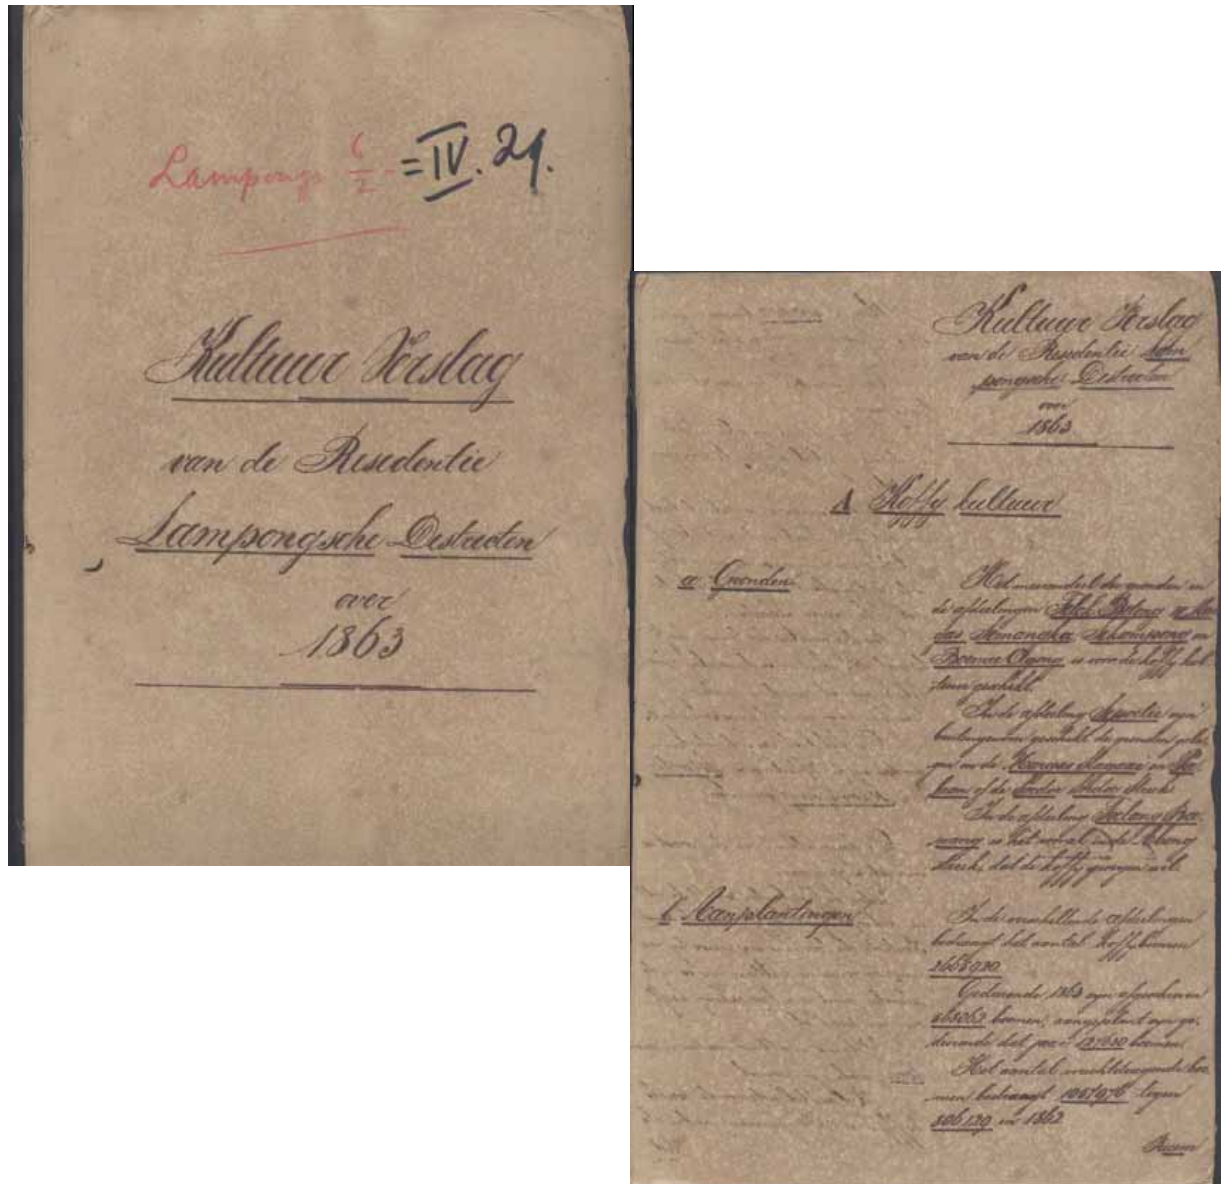 Lampongs 6/2 = IV. 29.
Kultuur Verslag
van de Residentie
Lampongsche Districten
over
1863
Kultuur Verslag
van de Residentie Lam
pongsche Districten
over
1863
A Koffy kultuur
a Gronden
Het meerendeel der gronden in
de afdeelingen Telok Betong
Semangka Sekampong en
Boemie Agong is voor de koffy kul
tuur geschikt
In de afdeeling Sepoetie zyn
de gronden gele
gen in de
In de afdeeling Toelang Ba
wang is het vooral in de
dat de koffy groeyen wil.
b Aanplantingen
In de verschillende afdeelingen
bedraagt het aantal koffyboomen
2663920
Gedurende 1863 zyn afgeschreven
boomen; aangeplant zyn ge
durende dat jaar 127620 boomen.
Het aantal vruchtdragende boo
men bedraagt 1057976 tegen
806129 in 1862